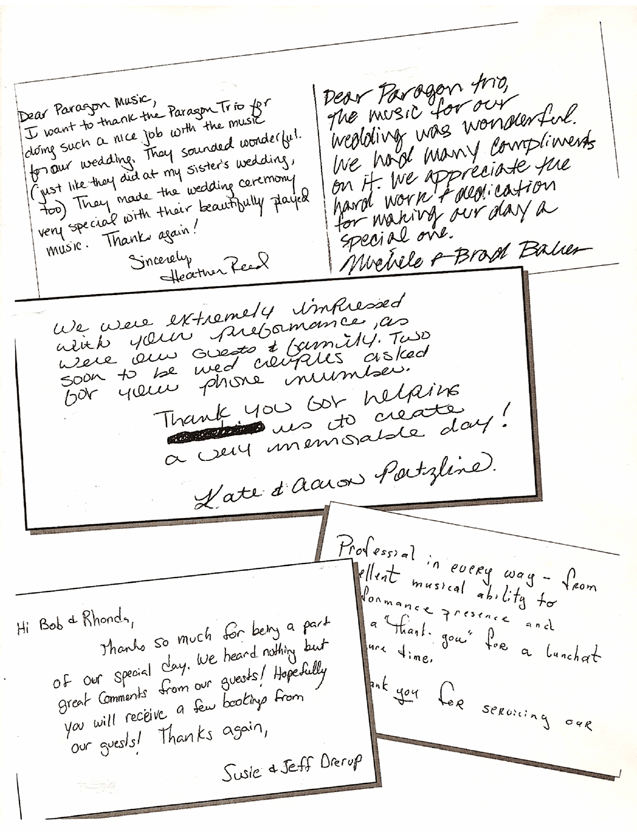 Dear Paragon Music,
I want to thank the Paragon Trio for
doing such a nice job with the music
for our wedding. They sounded wonderful.
(just like they did at my sister's wedding,
too) They made the wedding ceremony
very special with their beautifully played
music. Thanks again!
Sincerely
Heather Reed
Dear Paragon trio,
the music for our
wedding was wonderful.
We had many compliments
on it. We appreciate the
hard work & dedication
for making our day a
special one.
Michele & Brad Baker
We were extremely impressed
with your preformance, as
were our guests & family. Two
soon to be wed couples asked
for your phone number.
Thank you for helping
us to create
a very memorable day!
Kate & Aaron Portzline.
Professial in every way - from
ellent musical ability to
formance presence and
a "thank-you" for a
ure time.
ank you for servicing our
Hi Bob & Rhonda,
Thanks so much for being a part
of our special day. We heard nothing but
great comments from our guests! Hopefully
you will receive a few bookings from
our guests! Thanks again,
Susie & Jeff Drerup